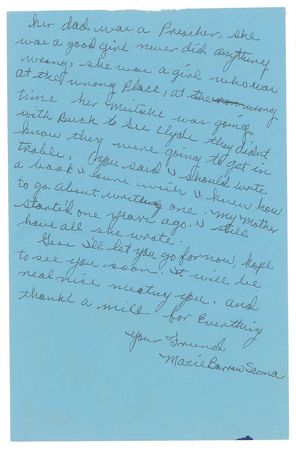 her dad was a Preacher, she
was a good girl never did anything
wrong, she was a girl who was
at the wrong Place, at the wrong
time her mistake was going
with Buck to see Clyde they didn't
know they were going to get in
trouble. You said I should write
a book I sure wish I knew how
to go about writing one. My Mother
start'd one years ago. I still
have all she wrote.
Gess I'll let you go for now, hope
to see you soon. It will be
real nise meating you. and
thankl a mill for Everthing
Your Friend
Marie Barrow Scoma